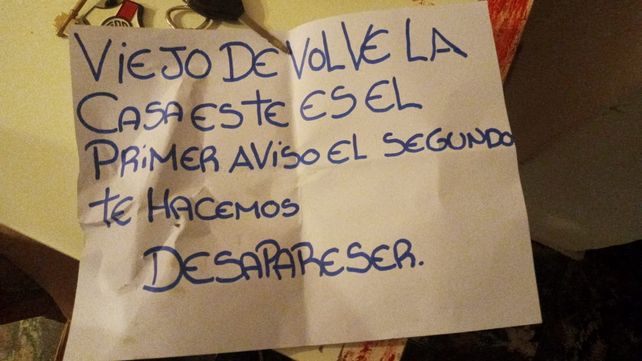 VIEJO DEVOLVE LA
CASA ESTE ES EL
PRIMER AVISO EL SEGUNDO
TE HACEMOS
DESAPARESER.